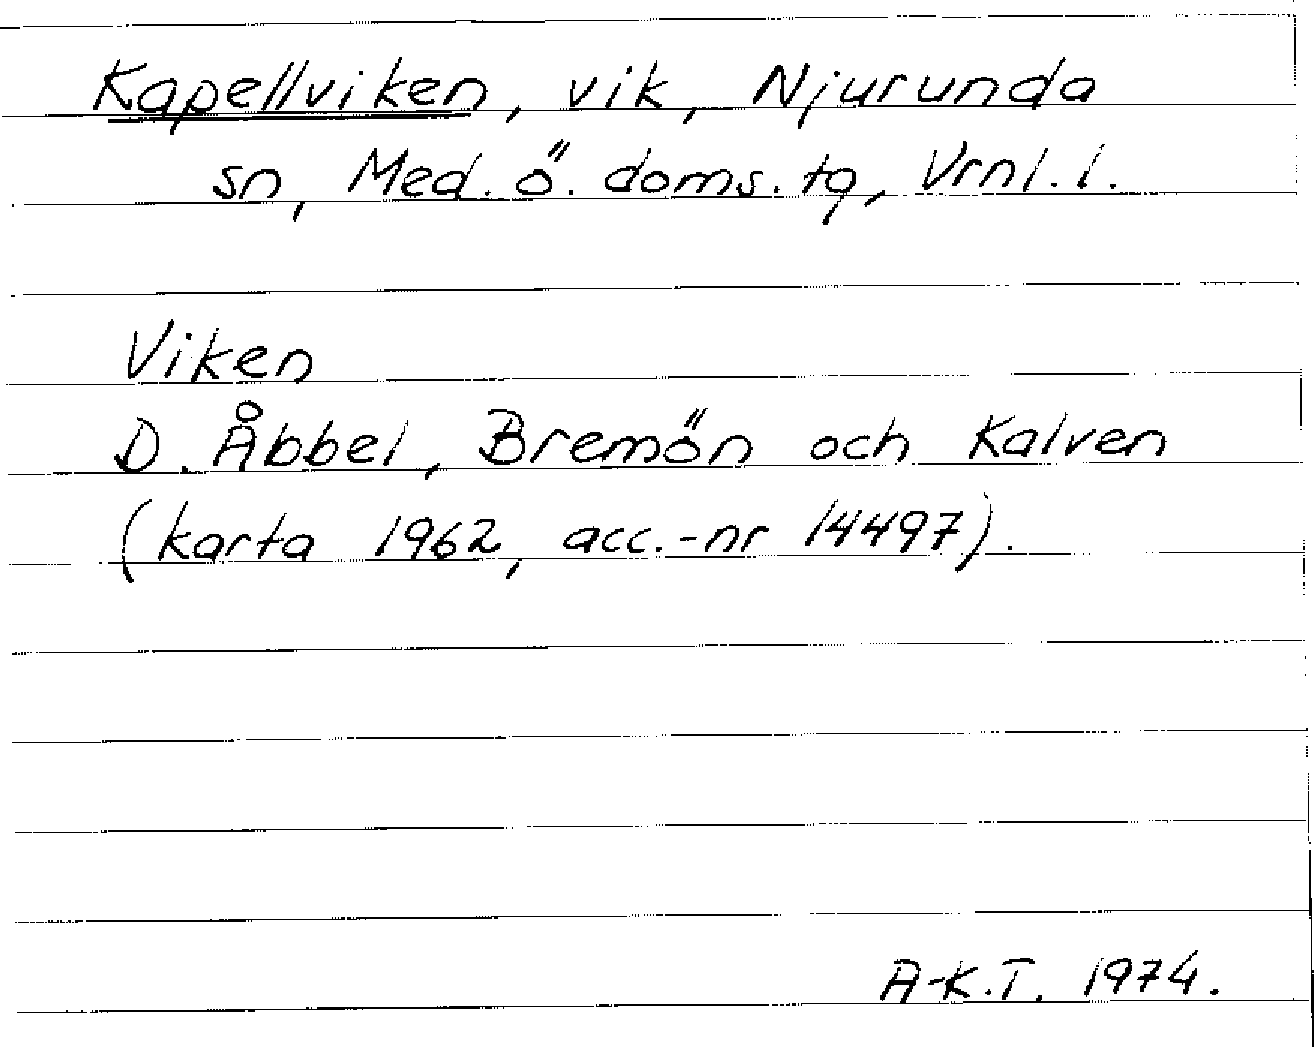 Kapellviken, vik, Njurunda
sn, Med. ö. doms. tg, Vrnl. l.
Viken
D. Åbbel, Bremön och Kalven
(karta 1962, acc.-nr 14497).
A-K.T. 1974.